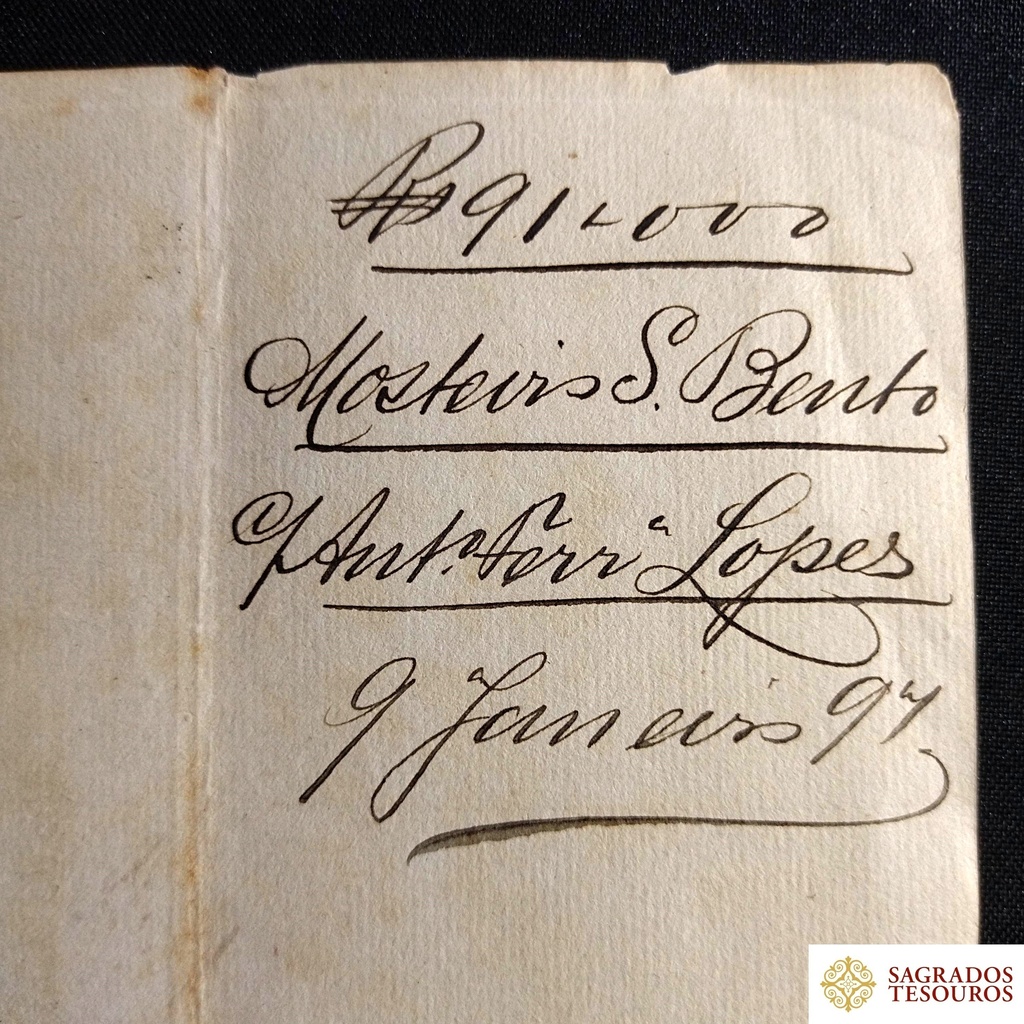 Rs 91-000
Mosteiro S. Bento
c/ Antº. Ferrª Lopes
9 Janeiro 97
SAGRADOS
TESOUROS